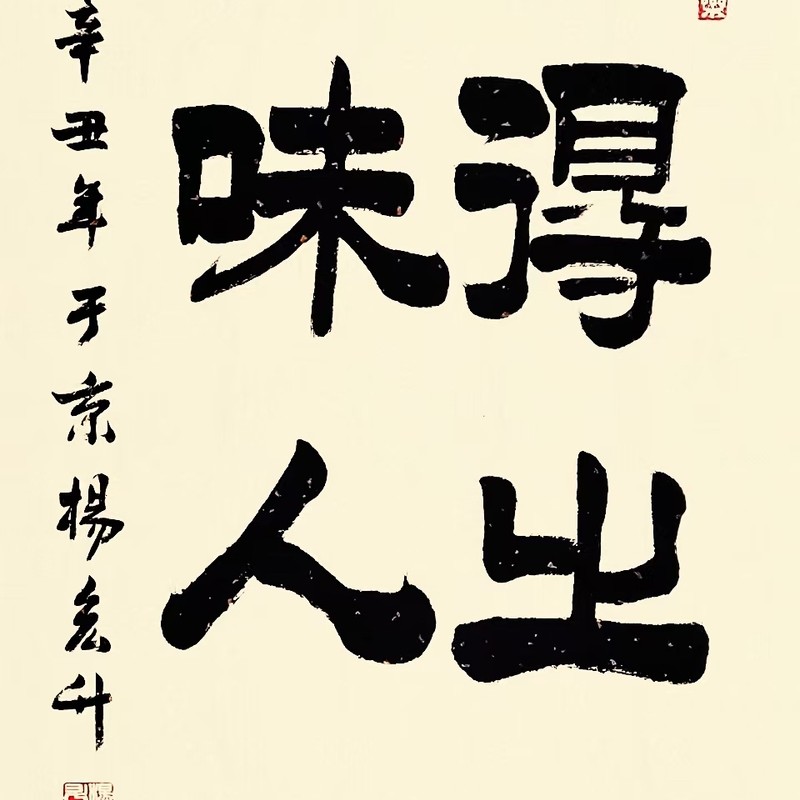 得出
味人
辛丑年于京楊宏升